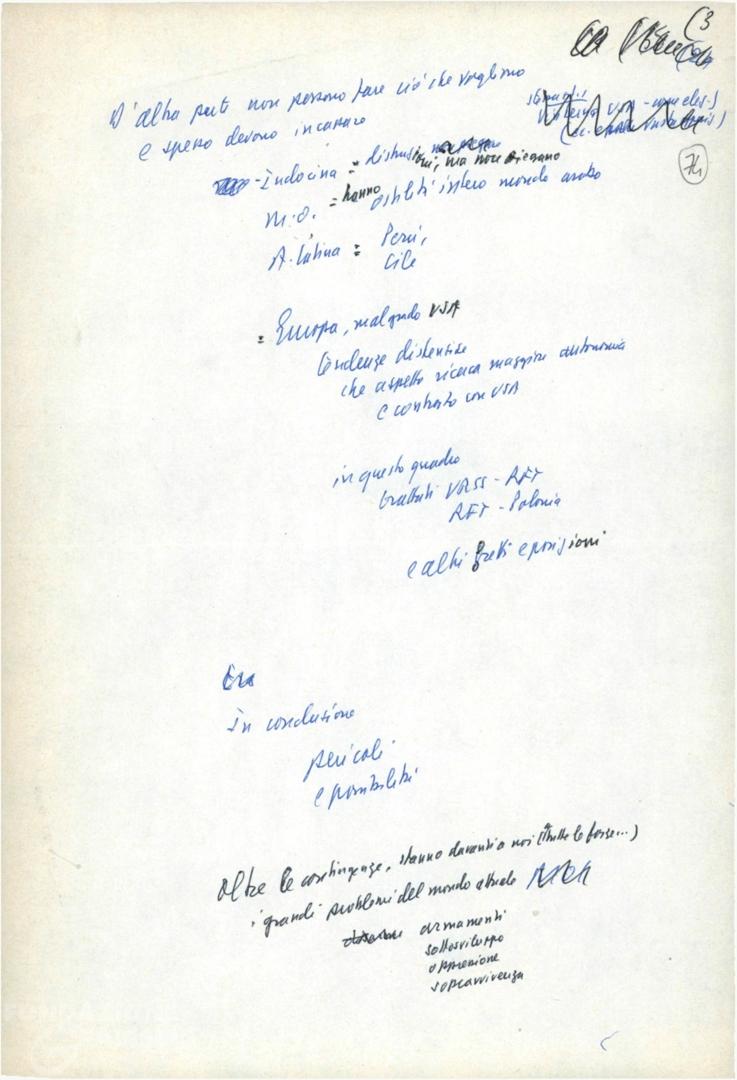 (3
D'altra parte non possono fare ciò che vogliono
e spesso devono incassare
74
- Indocina = distruzioni, ma non piegano
M.O. = hanno ostilità intero mondo arabo
A. Latina = Perù,
Cile
= Europa, malgrado USA
tendenze distensive
che aspetto ricerca maggiore autonomia
e contrasto con USA
in questo quadro
trattati URSS - RFT
RFT - Polonia
e altri gesti e posizioni
In conclusione
pericoli
e possibilità
Oltre le contingenze, stanno davanti a noi (tutte le forze...)
i grandi problemi del mondo attuale
armamenti
sottosviluppo
oppressione
sopravvivenza